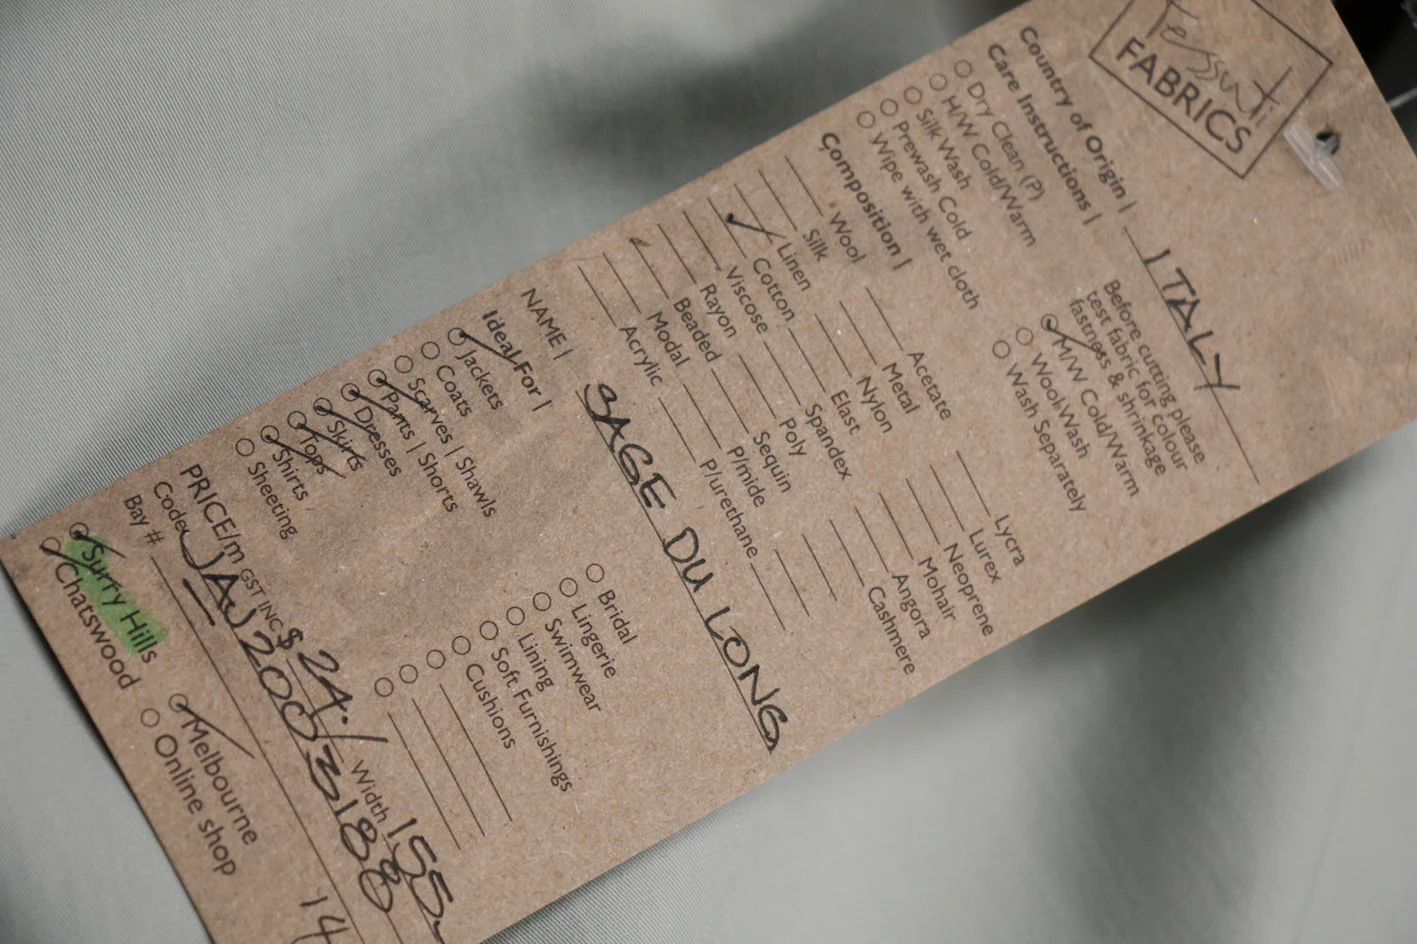 Tessuti
FABRICS
Country of Origin | ITALY
Care Instructions | Before cutting please
test fabric for colour
fastness & shrinkage
Dry Clean (P) M/W Cold/Warm
H/W Cold/Warm Wool Wash
Silk Wash Wash Separately
Prewash Cold
Wipe with wet cloth
Composition |
Wool Acetate Lycra
Silk Metal Lurex
Linen Nylon Neoprene
Cotton Elast Mohair
Viscose Spandex Angora
Rayon Poly Cashmere
Beaded Sequin
Modal P/mide
Acrylic P/urethane
NAME | SAGE DU LONG
Ideal For |
Jackets Bridal
Coats Lingerie
Scarves | Shawls Swimwear
Pants | Shorts Lining
Dresses Soft Furnishings
Skirts Cushions
Tops
Shirts
Sheeting
PRICE/m GST INC $ 24./ Width 155
Code JAN20003188
Bay # 14
Surry Hills Melbourne
Chatswood Online shop